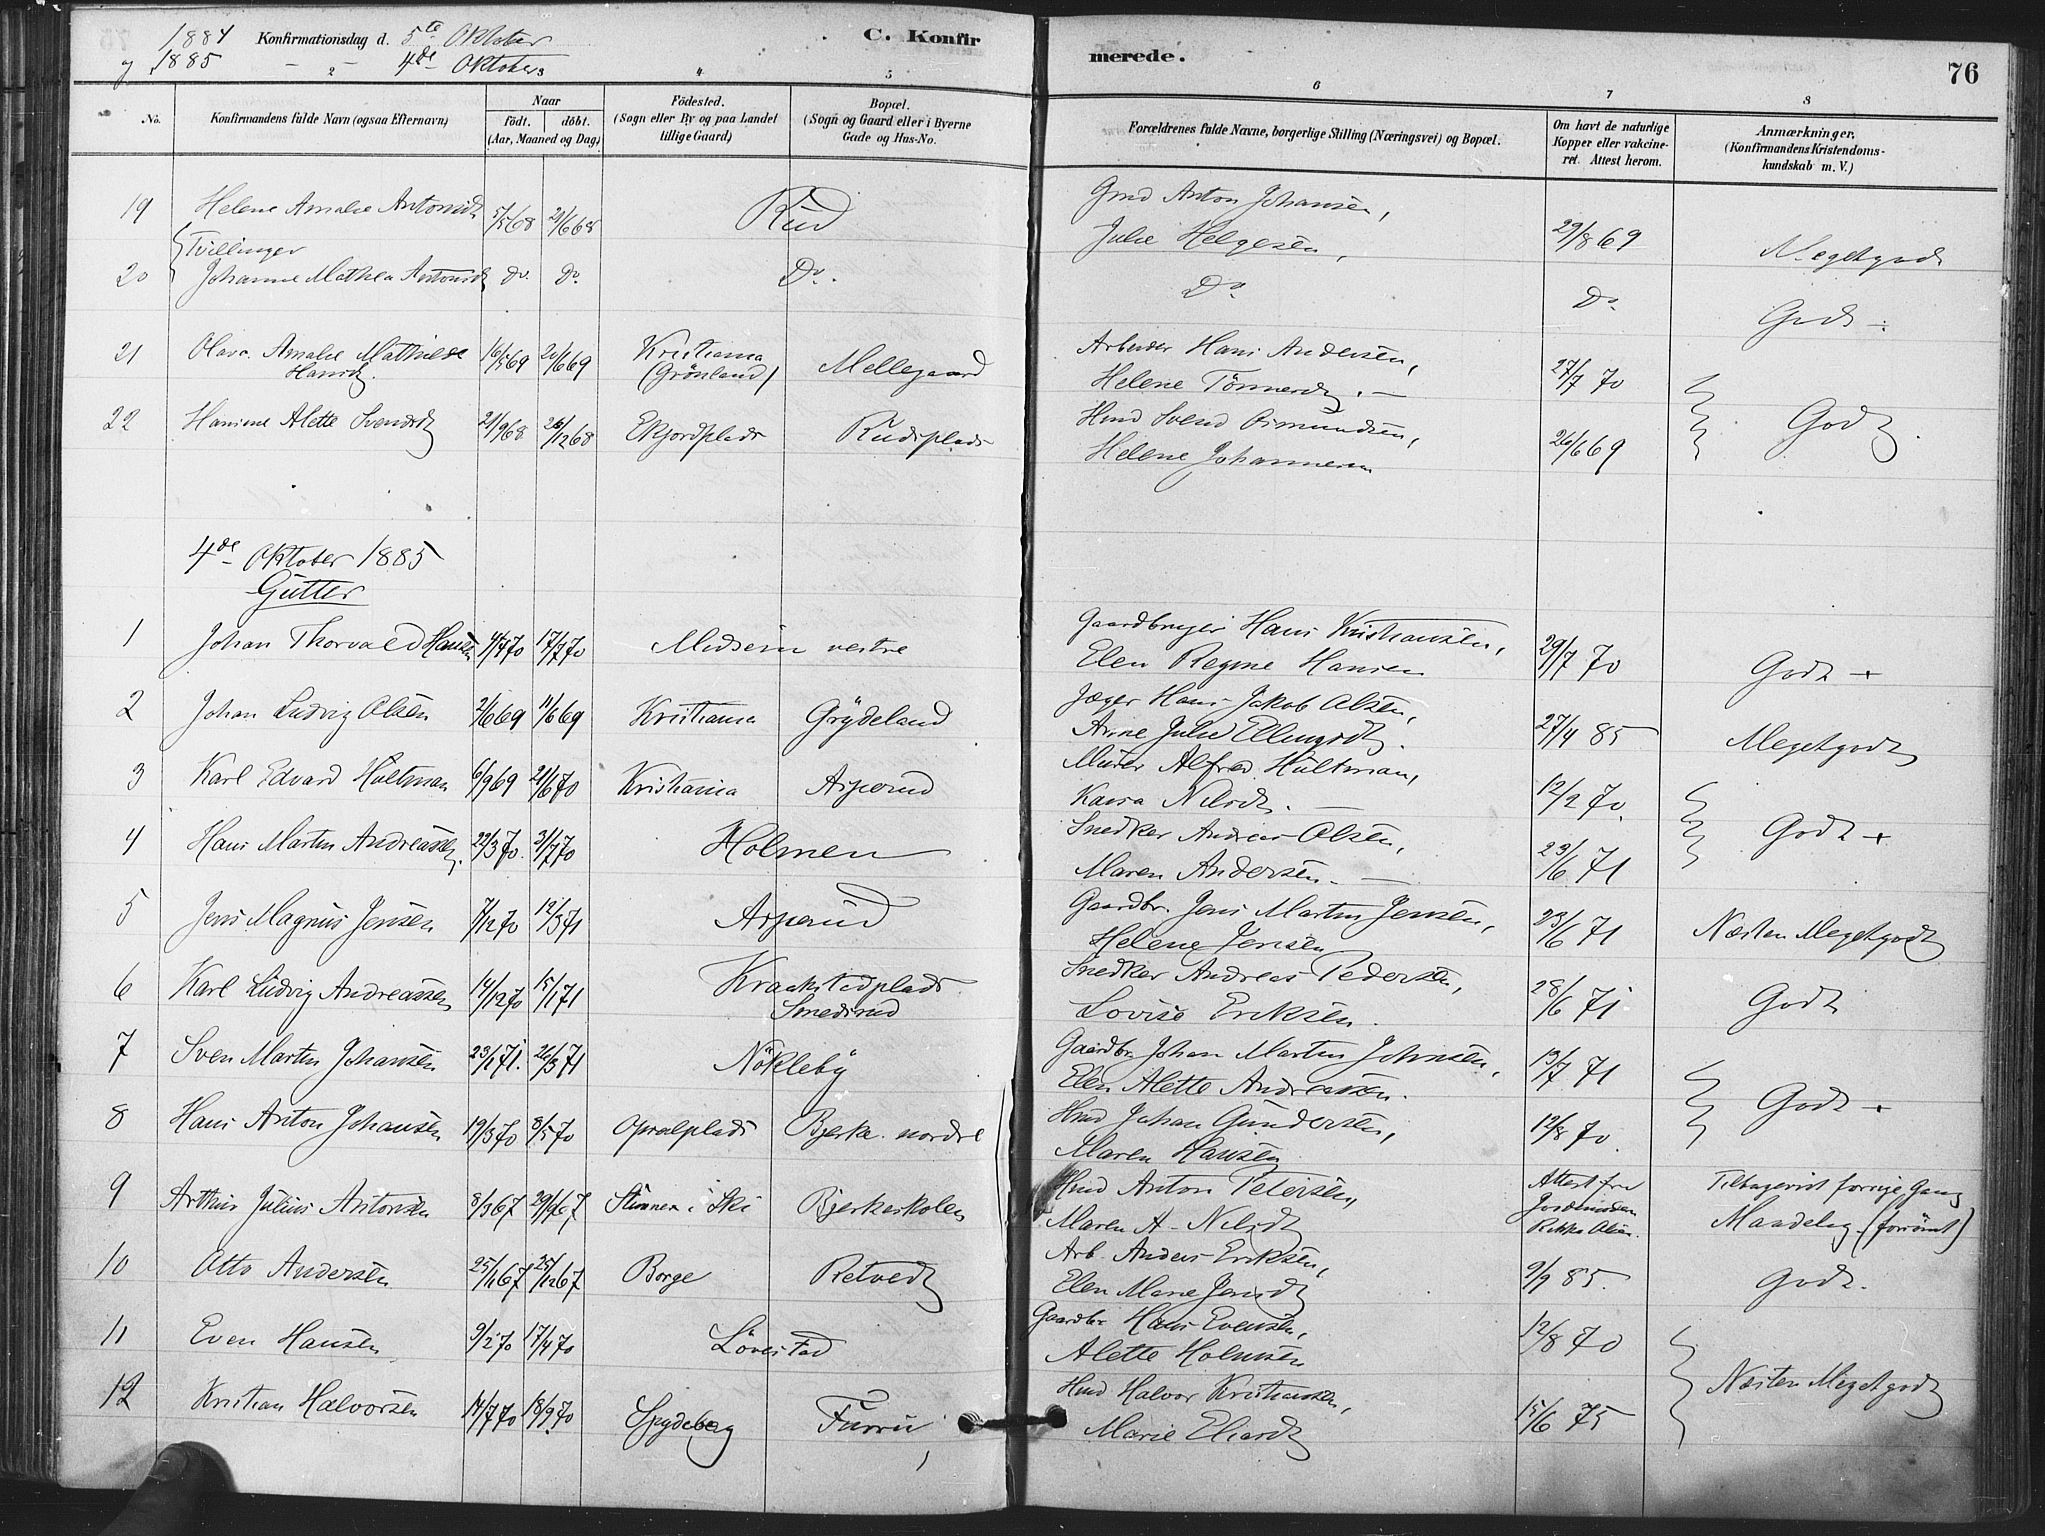 1884 Konfirmationsdag d. 5te Oktober C. Konfir merede. 76
og 1885 – " – 4de Oktober
2 3 4 5 6 7 8
No. Konfirmandens fulde Navn (ogsaa Efternavn) Naar födt. döbt. (Aar, Maaned og Dag) Födested. (Sogn eller By og paa Landet tillige Gaard) Bopæl. (Sogn og Gaard eller i Byerne Gade og Hus-No. Forældrenes fulde Navne, borgerlige Stilling (Næringsvei) og Bopæl. Om havt de naturlige Kopper eller vakcineret. Attest herom. Anmærkninger. (Konfirmandens Kristendomskundskab m. V.)
19 Helene Amalie Antonsdt 5/5 68 21/6 68 Rud Gmd Anton Johansen, Julie Helgesen, 29/8 69 Megetgodt
Tvillinger
20 Johanne Mathea Antonsdt Do. Do. Do. Do. Do. Godt
21 Olava Amalie Mathilde Hansdt. 16/5 69 20/6 69 Kristiania (Grönland) Mellegaard Arbeider Hans Andersen, Helene Tönnesdt. 27/7 70
22 Hanine Alette Svendsdt 21/9 68 26/12 68 Ekjordplads Rudsplads Hmd Svend Osmundsen, Helene Johannesen 26/6 69 Godt.
4de Oktober 1885
Gutter
1 Johan Thorvald Hansen 4/4 70 17/7 70 Midsem vestre Gaardbruger Hans Kristiansen, Elen Regine Hansen 29/7 70 Godt +
2 Johan Ludvig Olsen 2/6 69 11/6 69 Kristiania Grydeland Jæger Hans Jakob Olsen, Anne Julie Ellingsdt. 27/4 85 Megetgodt
3 Karl Edvard Hultman 6/9 69 21/6 70 Kristiania Asperud Murer Alfred Hultman, Kaisa Nilsdt. 12/2 70.
4 Hans Martin Andreassen. 22/3 70. 31/7 70 Holmen Snedker Andreas Olsen, Maren Andersen. 23/6 71 Godt +
5 Jens Magnus Jensen 7/12 70 12/3 71 Asperud Gaardbr. Jens Martin Jensen, Helene Jensen 23/6 71 Næsten Megetgodt
6 Karl Ludvig Andreassen 14/12 70 15/1 71 Kraakstadplads Smedsrud Snedker Andreas Pedersen, Lovise Eriksen. 28/6 71 Godt
7 Sven Martin Johansen 23/1 71. 26/3 71 Nökleby Gaardbr Johan Martin Johnsen, Elen Alette Andreassen. 13/7 71
8 Hans Anton Johansen 19/3 70 8/5 70 Opsalplads Bjerke nordre Hmd Johan Gundersen, Maren Hansen 12/8 70. Godt +
9 Arthur Julius Antonsen 8/3 67 29/6 67 i Ski Bjerkeskolen Hmd Anton Petersen, Maren A. Nilsdt Attest fra Jordmoder Rikke Olsen. Tilbagevist forrige Gang Maadelig (forsömt)
10 Otto Andersen 25/11 67 25/12 67 Borge Retvedt Arb. Anders Eriksen, Elen Marie Jensdt 9/9 85. Godt.
11 Even Hansen 9/2 70 17/4 70 Lövestad Gaardbr Hans Evensen, Alette Holmsen 12/8 70
12 Kristian Halvorsen 14/7 70 18/9 70 Spydeberg Furru Hmd Halvor Kristiansen, Marie Eliasdt 15/6 75 Næsten Megetgodt